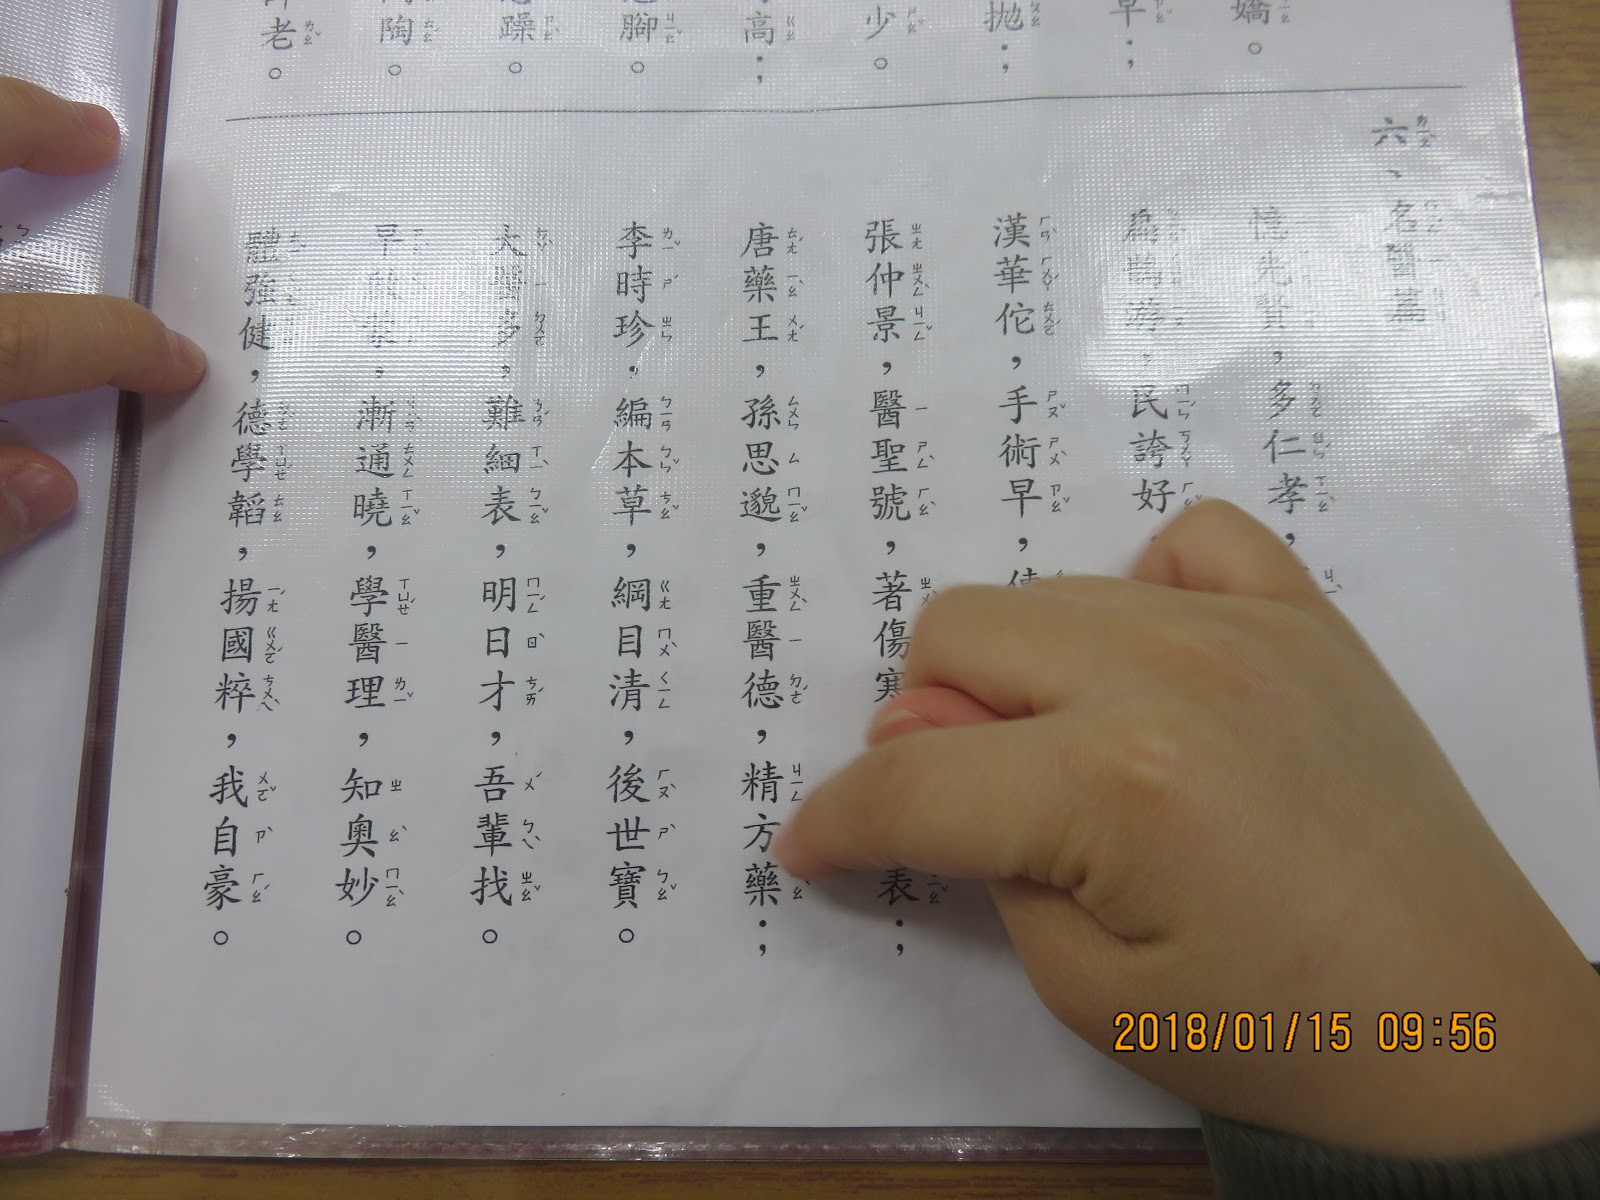 嬌。
早；
拋；
少。
高；
腳。
躁。
陶。
老。
六、名醫篇
憶先賢，多仁孝，
扁鵲游，民誇好
漢華佗，手術早，
張仲景，醫聖號，著傷寒 表；
唐藥王，孫思邈，重醫德，精方藥；
李時珍，編本草，綱目清，後世寶。
大醫多，難細表，明日才，吾輩找。
早啟蒙，漸通曉，學醫理，知奧妙。
體強健，德學韜，揚國粹，我自豪。
2018/01/15 09:56